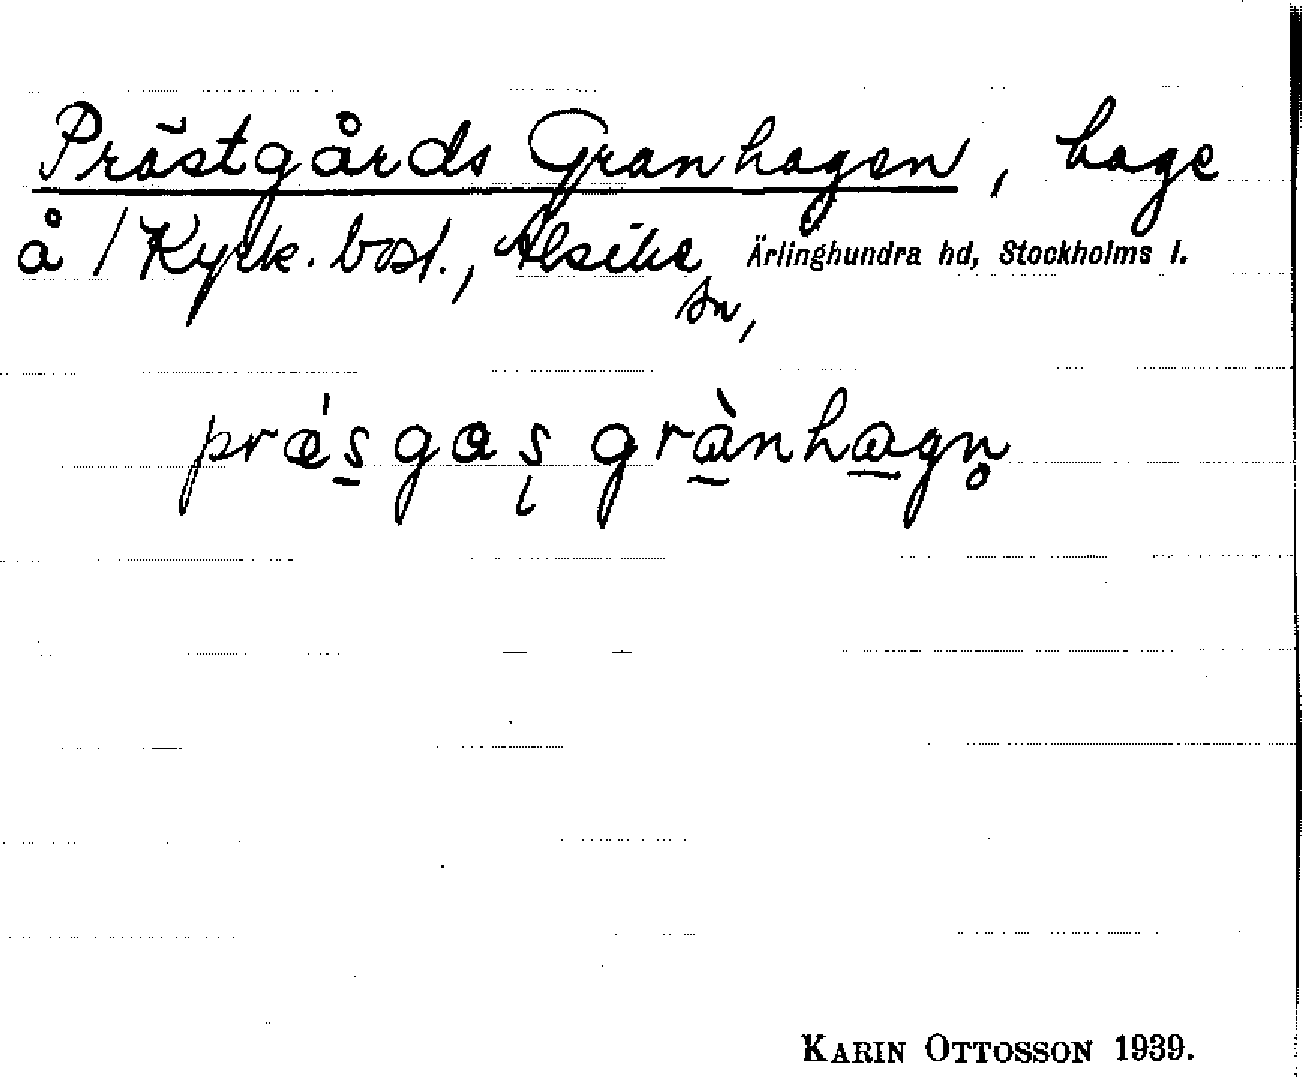 Prästgårds Granhagen, hage
å / Kyrk. bost., Alsike Ärlinghundra hd, Stockholms l.
sn,
prǽs̲gas̨ grànhagn̥
KARIN OTTOSSON 1939.